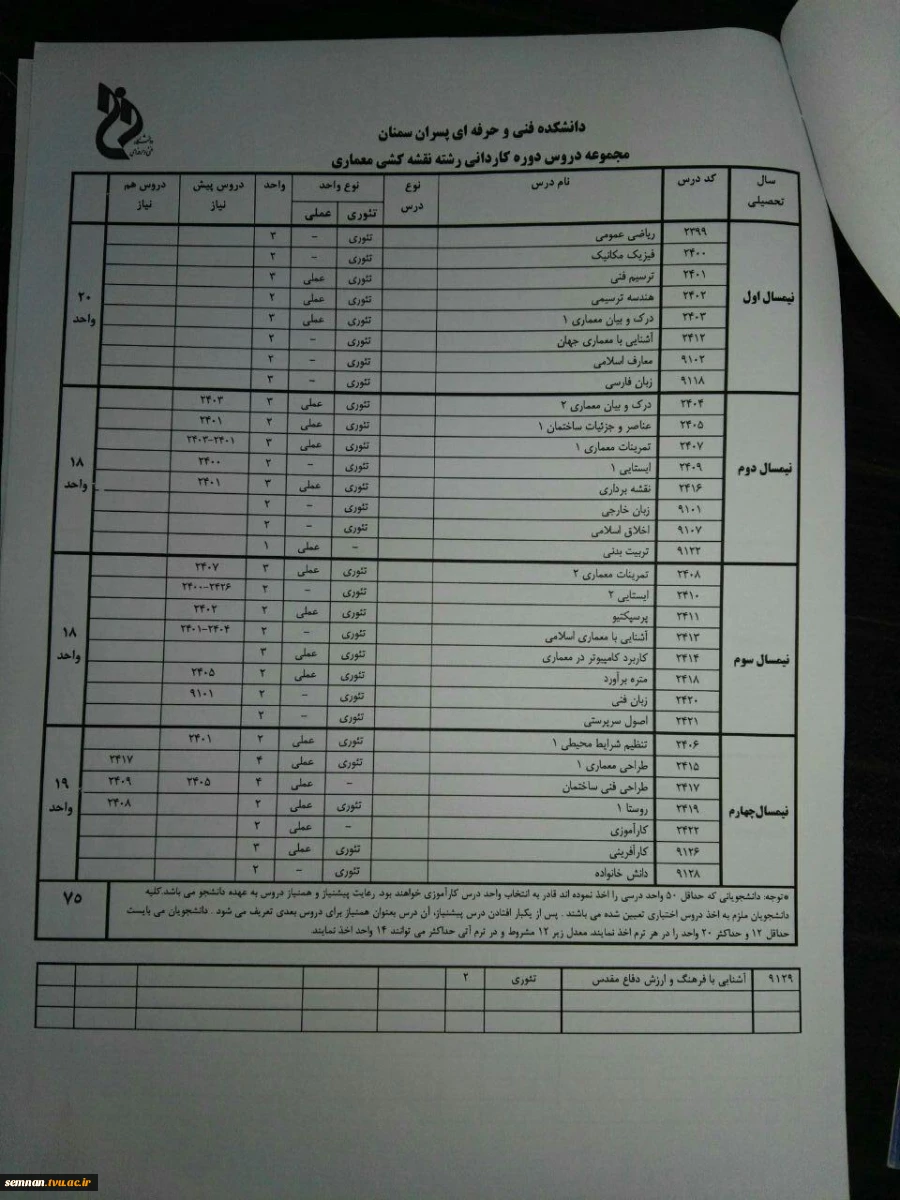 دانشکده فنی و حرفه ای پسران سمنان
مجموعه دروس دوره کاردانی رشته نقشه کشی معماری
سال تحصیلی کد درس نام درس نوع درس نوع واحد تئوری عملی واحد دروس پیش نیاز دروس هم نیاز
نیمسال اول
۲۳۹۹ ریاضی عمومی تئوری - ۳
۲۴۰۰ فیزیک مکانیک تئوری - ۲
۲۴۰۱ ترسیم فنی تئوری عملی ۳
۲۴۰۲ هندسه ترسیمی تئوری عملی ۲
۲۴۰۳ درک و بیان معماری ۱ تئوری عملی ۳
۲۴۱۲ آشنایی با معماری جهان تئوری - ۲
۹۱۰۲ معارف اسلامی تئوری - ۲
۹۱۱۸ زبان فارسی تئوری - ۳
۲۰ واحد
نیمسال دوم
۲۴۰۴ درک و بیان معماری ۲ تئوری عملی ۳ ۲۴۰۳
۲۴۰۵ عناصر و جزئیات ساختمان ۱ تئوری عملی ۲ ۲۴۰۱
۲۴۰۷ تمرینات معماری ۱ تئوری عملی ۳ ۲۴۰۳-۲۴۰۱
۲۴۰۹ ایستایی ۱ تئوری - ۲ ۲۴۰۰
۲۴۱۶ نقشه برداری تئوری عملی ۳ ۲۴۰۱
۹۱۰۱ زبان خارجی تئوری - ۲
۹۱۰۷ اخلاق اسلامی تئوری - ۲
۹۱۲۲ تربیت بدنی - عملی ۱
۱۸ واحد
نیمسال سوم
۲۴۰۸ تمرینات معماری ۲ تئوری عملی ۳ ۲۴۰۷
۲۴۱۰ ایستایی ۲ تئوری - ۲ ۲۴۰۰-۲۴۲۶
۲۴۱۱ پرسپکتیو تئوری عملی ۲ ۲۴۰۲
۲۴۱۳ آشنایی با معماری اسلامی تئوری - ۲ ۲۴۰۱-۲۴۰۴
۲۴۱۴ کاربرد کامپیوتر در معماری تئوری عملی ۳
۲۴۱۸ متره برآورد تئوری عملی ۲ ۲۴۰۵
۲۴۲۰ زبان فنی تئوری - ۲ ۹۱۰۱
۲۴۲۱ اصول سرپرستی تئوری - ۲
۱۸ واحد
نیمسال چهارم
۲۴۰۶ تنظیم شرایط محیطی ۱ تئوری عملی ۲ ۲۴۰۱
۲۴۱۵ طراحی معماری ۱ تئوری عملی ۴ ۲۴۱۷
۲۴۱۷ طراحی فنی ساختمان - عملی ۴ ۲۴۰۵ ۲۴۰۹
۲۴۱۹ روستا ۱ تئوری عملی ۲ ۲۴۰۸
۲۴۲۲ کارآموزی - عملی ۲
۹۱۲۶ کارآفرینی تئوری عملی ۳
۹۱۲۸ دانش خانواده تئوری - ۲
۱۹ واحد
*توجه: دانشجویانی که حداقل ۵۰ واحد درسی را اخذ نموده اند قادر به انتخاب واحد درس کارآموزی خواهند بود. رعایت پیشنیاز و همنیاز دروس به عهده دانشجو می باشد.کلیه
دانشجویان ملزم به اخذ دروس اختیاری تعیین شده می باشند . پس از یکبار افتادن درس پیشنیاز، آن درس بعنوان همنیاز برای دروس بعدی تعریف می شود . دانشجویان می بایست
حداقل ۱۲ و حداکثر ۲۰ واحد را در هر ترم اخذ نمایند. معدل زیر ۱۲ مشروط و در ترم آتی حداکثر می توانند ۱۴ واحد اخذ نمایند.
۷۵
۹۱۲۹ آشنایی با فرهنگ و ارزش دفاع مقدس تئوری ۲
semnan.tvu.ac.ir